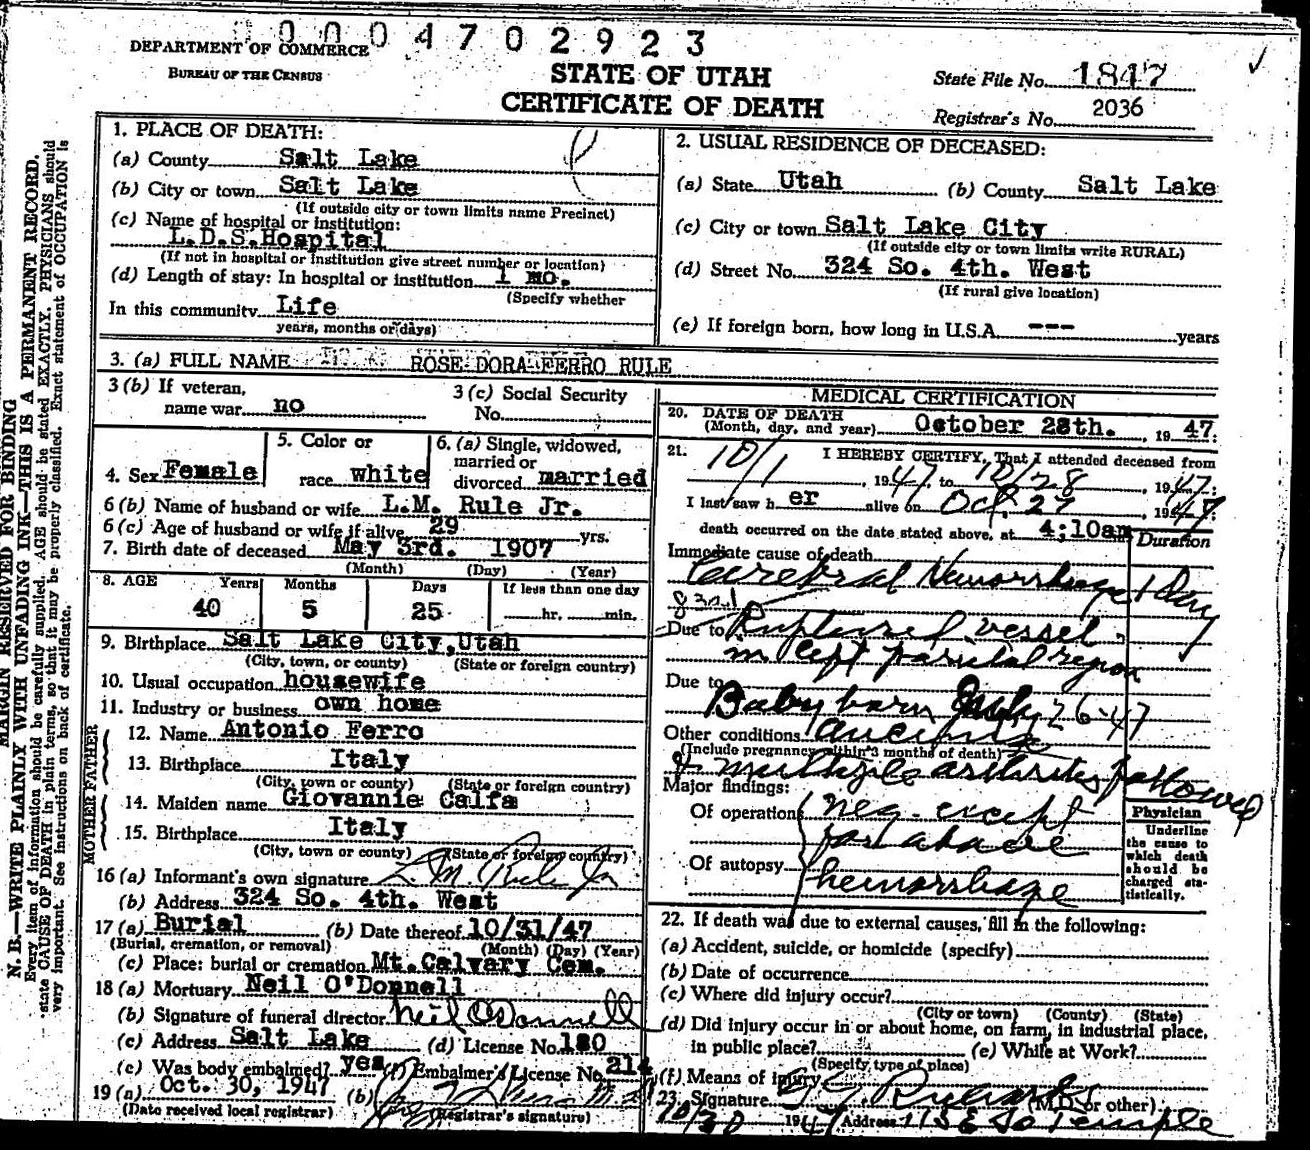 00004702923
DEPARTMENT OF COMMERCE
BUREAU OF THE CENSUS
STATE OF UTAH
CERTIFICATE OF DEATH
State File No. 1847
Registrar's No. 2036
MARGIN RESERVED FOR BINDING
N. B.—WRITE PLAINLY WITH UNFADING INK—THIS IS A PERMANENT RECORD.
Every item of information should be carefully supplied. AGE should be stated EXACTLY. PHYSICIANS should
state CAUSE OF DEATH in plain terms, so that it may be properly classified. Exact statement of OCCUPATION is
very important. See instructions on back of certificate.
1. PLACE OF DEATH:
(a) County Salt Lake
(b) City or town Salt Lake
(If outside city or town limits name Precinct)
(c) Name of hospital or institution:
L.D.S.Hospital
(If not in hospital or institution give street number or location)
(d) Length of stay: In hospital or institution 1 mo.
(Specify whether
In this community Life
years, months or days)
2. USUAL RESIDENCE OF DECEASED:
(a) State Utah (b) County Salt Lake
(c) City or town Salt Lake City
(If outside city or town limits write RURAL)
(d) Street No. 324 So. 4th. West
(If rural give location)
(e) If foreign born, how long in U.S.A. --- years
3. (a) FULL NAME ROSE DORA FERRO RULE
3 (b) If veteran, name war no
3 (c) Social Security No.
4. Sex Female
5. Color or race white
6. (a) Single, widowed, married or divorced married
6 (b) Name of husband or wife L.M. Rule Jr.
6 (c) Age of husband or wife if alive 29 yrs.
7. Birth date of deceased May 3rd. 1907
(Month) (Day) (Year)
8. AGE Years Months Days If less than one day
40 5 25 hr. min.
9. Birthplace Salt Lake City,Utah
(City, town, or county) (State or foreign country)
10. Usual occupation housewife
11. Industry or business own home
FATHER
12. Name Antonio Ferro
13. Birthplace Italy
(City, town or county) (State or foreign country)
MOTHER
14. Maiden name Giovannie Calfa
15. Birthplace Italy
(City, town or county) (State or foreign country)
16 (a) Informant's own signature L M. Rule Jr
(b) Address 324 So. 4th. West
17 (a) Burial (b) Date thereof 10/31/47
(Burial, cremation, or removal) (Month) (Day) (Year)
(c) Place: burial or cremation Mt.Calvary Cem.
18 (a) Mortuary Neil O'Donnell
(b) Signature of funeral director Neil O'Donnell
(c) Address Salt Lake (d) License No. 180
(e) Was body embalmed? yes (f) Embalmer's License No. 214
19 (a) Oct. 30, 1947 (b)
(Date received local registrar) (Registrar's signature)
MEDICAL CERTIFICATION
20. DATE OF DEATH
(Month, day, and year) October 28th. , 19 47.
21. I HEREBY CERTIFY, That I attended deceased from
10/1 , 1947, to 10/28 , 1947;
I last saw h er alive on Oct. 27 , 1947;
death occurred on the date stated above, at 4;10am
Duration
Immediate cause of death
Cerebral Hemorrhage 1 Day
Due to Ruptured vessel
in left parietal region
Due to
Baby born July 26-47
Other conditions
(Include pregnancy within 3 months of death)
& multiple arthritis followed
Major findings:
Of operation neg. except
for above
Of autopsy hemorrhage
Physician
Underline
the cause to
which death
should be
charged sta-
tistically.
22. If death was due to external causes, fill in the following:
(a) Accident, suicide, or homicide (specify)
(b) Date of occurrence
(c) Where did injury occur?
(City or town) (County) (State)
(d) Did injury occur in or about home, on farm, in industrial place,
in public place? (e) While at Work?
(Specify type of place)
(f) Means of injury
23. Signature (M.D. or other)
10/30 1947 Address 115 E So Temple